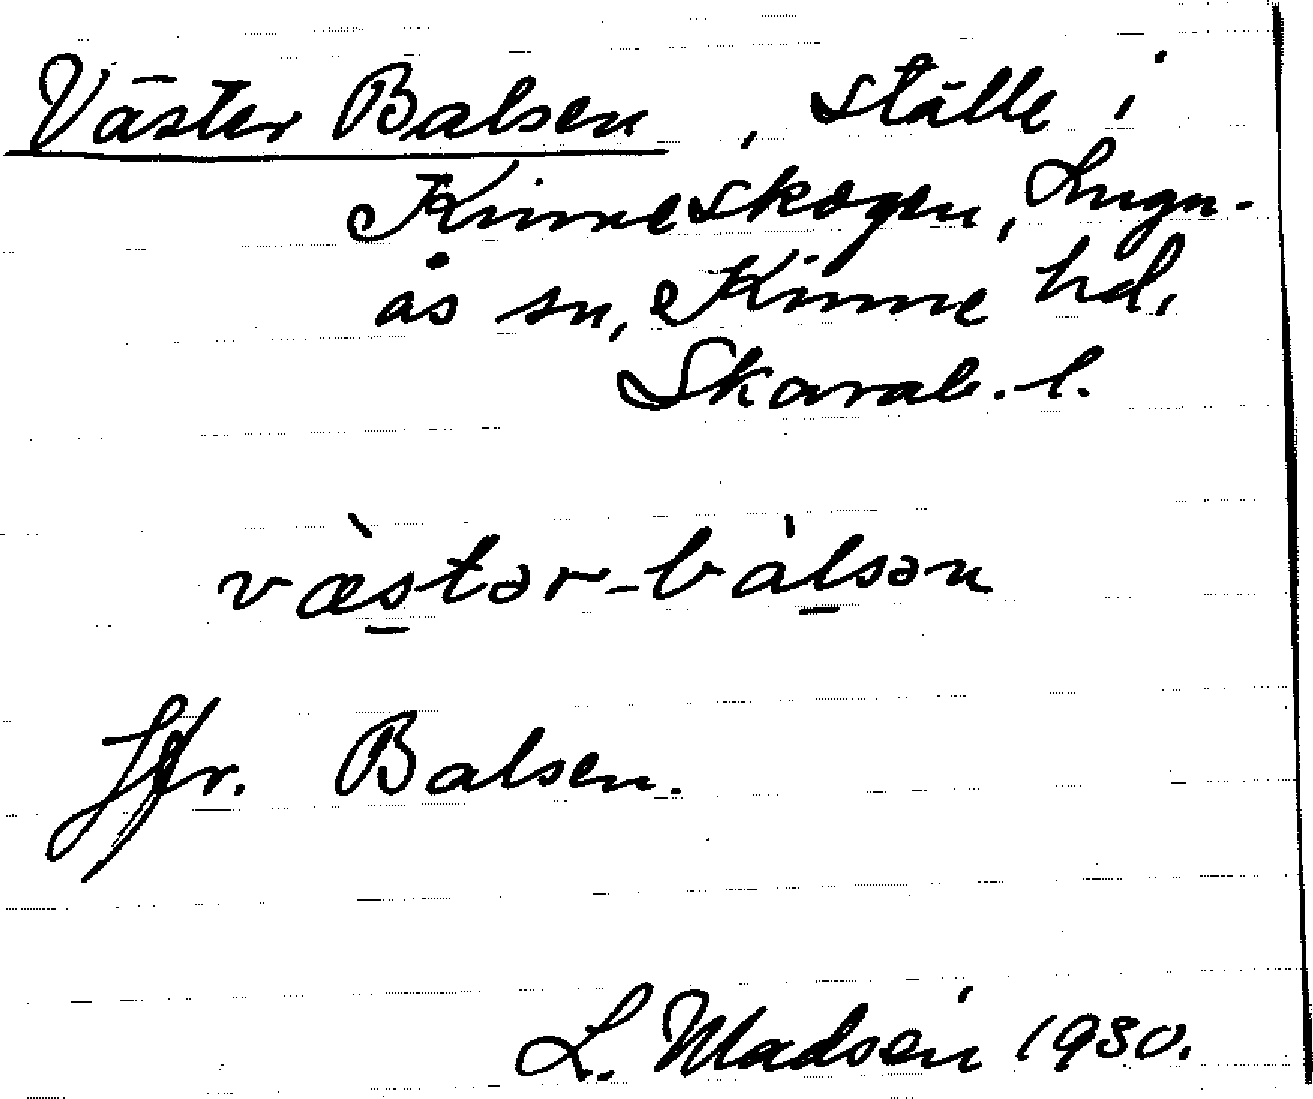 Väster Balsen, ställe i
Kinneskogen, Lugn-
ås sn, Kinne hd,
Skarab. l.
væ̀stər-bàlsən
Jfr. Balsen.
L. Madsén 1930.